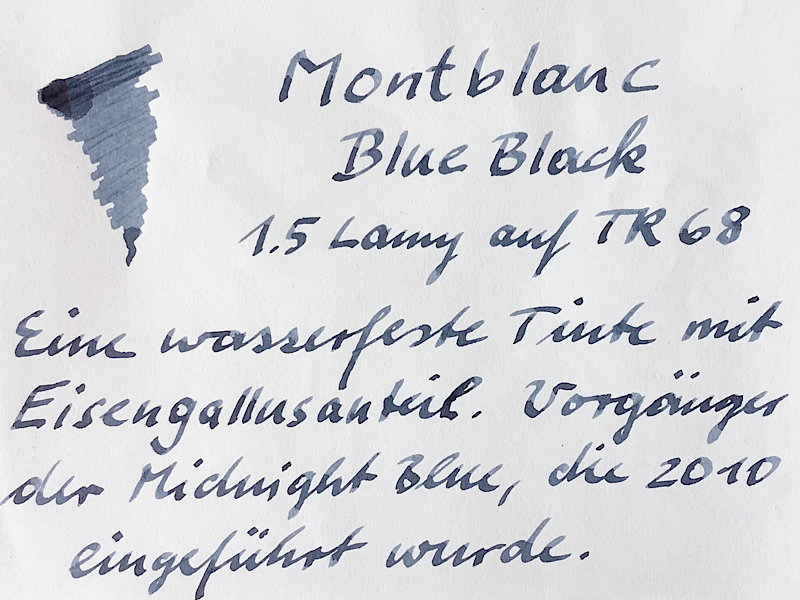 Montblanc
Blue Black
1.5 Lamy auf TR 68
Eine wasserfeste Tinte mit
Eisengallusanteil. Vorgänger
der Midnight Blue, die 2010
eingeführt wurde.